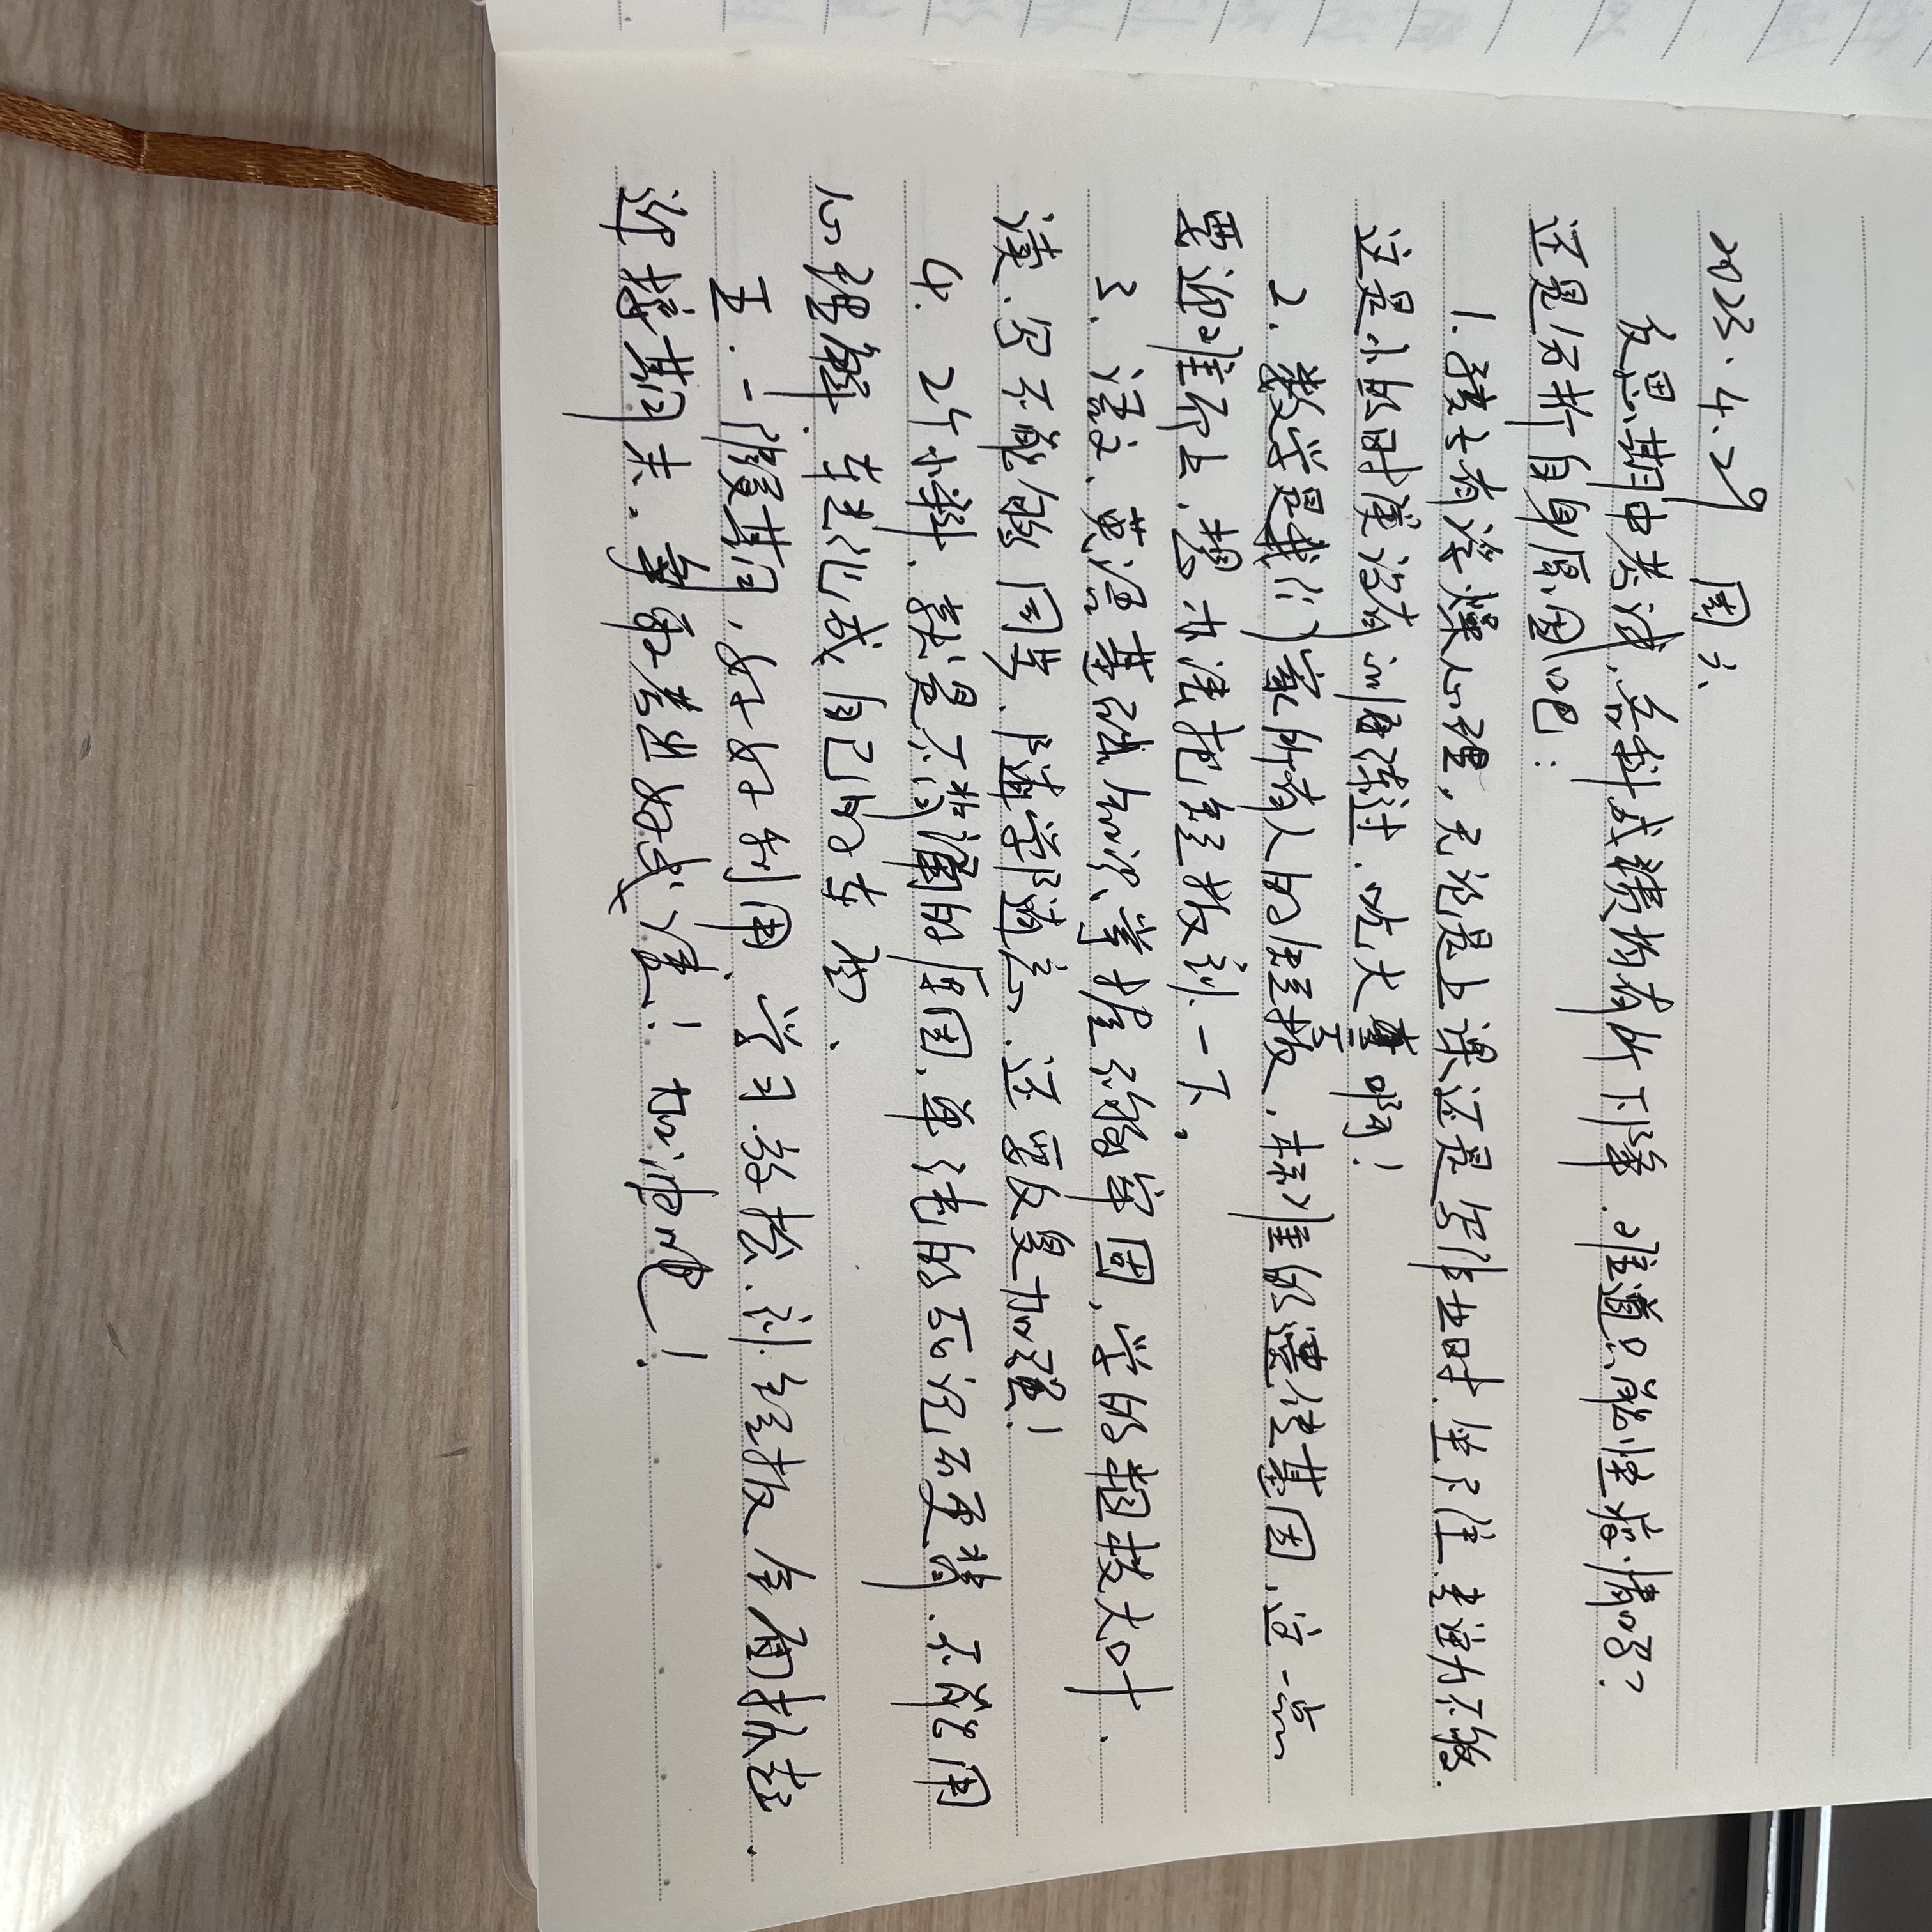 2023.4.29 周六
反思期中考试,各科成绩均有所下降.难道只能怪疫情吗?
还是分析自身原因吧:
1.孩子有浮燥心理,无论是上课还是写作业时.坐不住.专注力不够.
这是小的时候没有训练过.吃大亏啊!
2.数学是我们家所有人的短板.标准的遗传基因.这一点
要迎难而上.想办法把短板补一下.
3.语文、英语基础知识掌握不够牢固,学的粗枝大叶.
读.写不能够同步.随学随忘.还要反复加强!
4.2个小科.就是不背诵的原因.单纯的靠记不要背.不能用
心理解.转化成自己的东西.
五.一假期,好好利用.学习.放松.补短板全面抓起.
迎接期末.争取考出好成绩!加油吧!